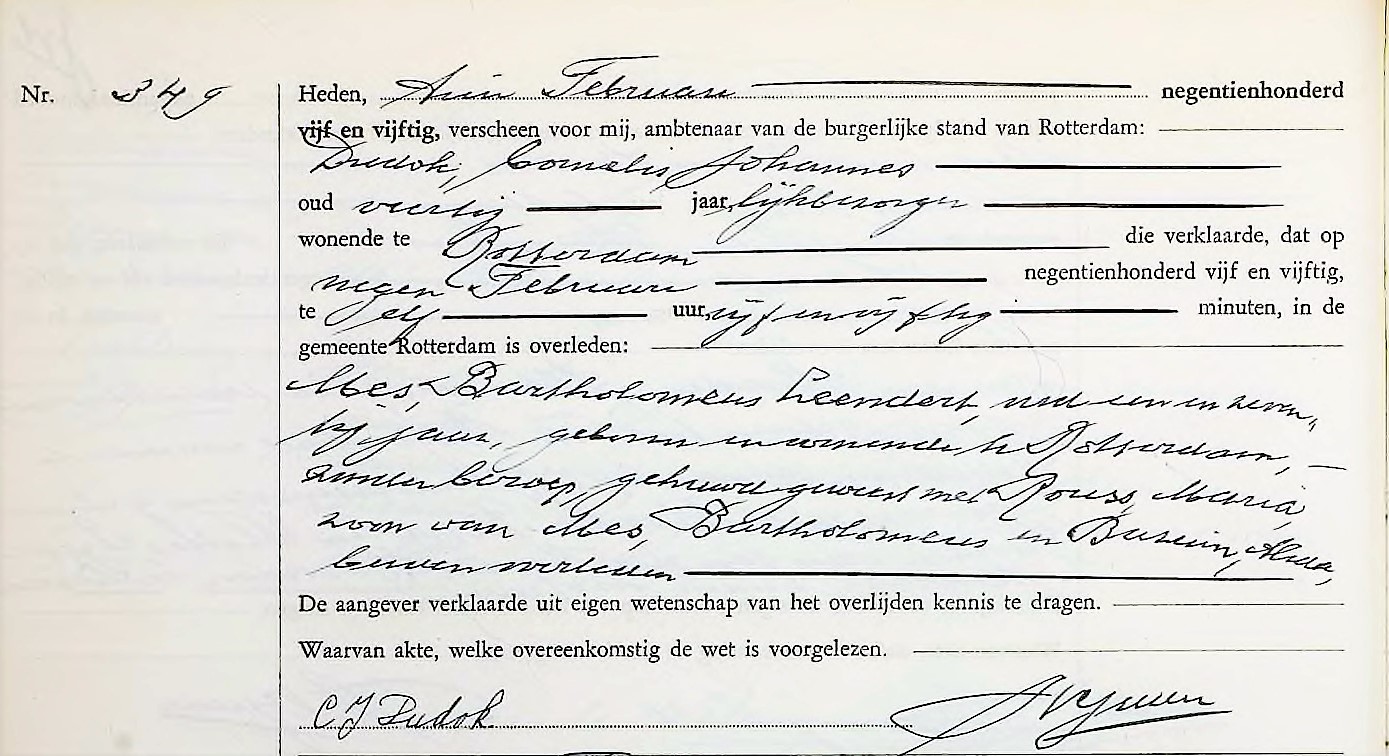 Nr. 349
Heden, tien Februari negentienhonderd
vijf en vijftig, verscheen voor mij, ambtenaar van de burgerlijke stand van Rotterdam:
Dudok, Cornelis Johannes
oud veertig jaar, lijkbezorger
wonende te Rotterdam die verklaarde, dat op
negen Februari negentienhonderd vijf en vijftig,
te elf uur, vijf en vijftig minuten, in de
gemeente Rotterdam is overleden:
Mes, Bartholomeus Leendert, oud een en zeven„
tig jaar, geboren en wonende te Rotterdam,
zonder beroep, gehuwd geweest met Rouss, Maria,
zoon van Mes, Bartholomeus en
beiden overleden
De aangever verklaarde uit eigen wetenschap van het overlijden kennis te dragen.
Waarvan akte, welke overeenkomstig de wet is voorgelezen.
C J Dudok